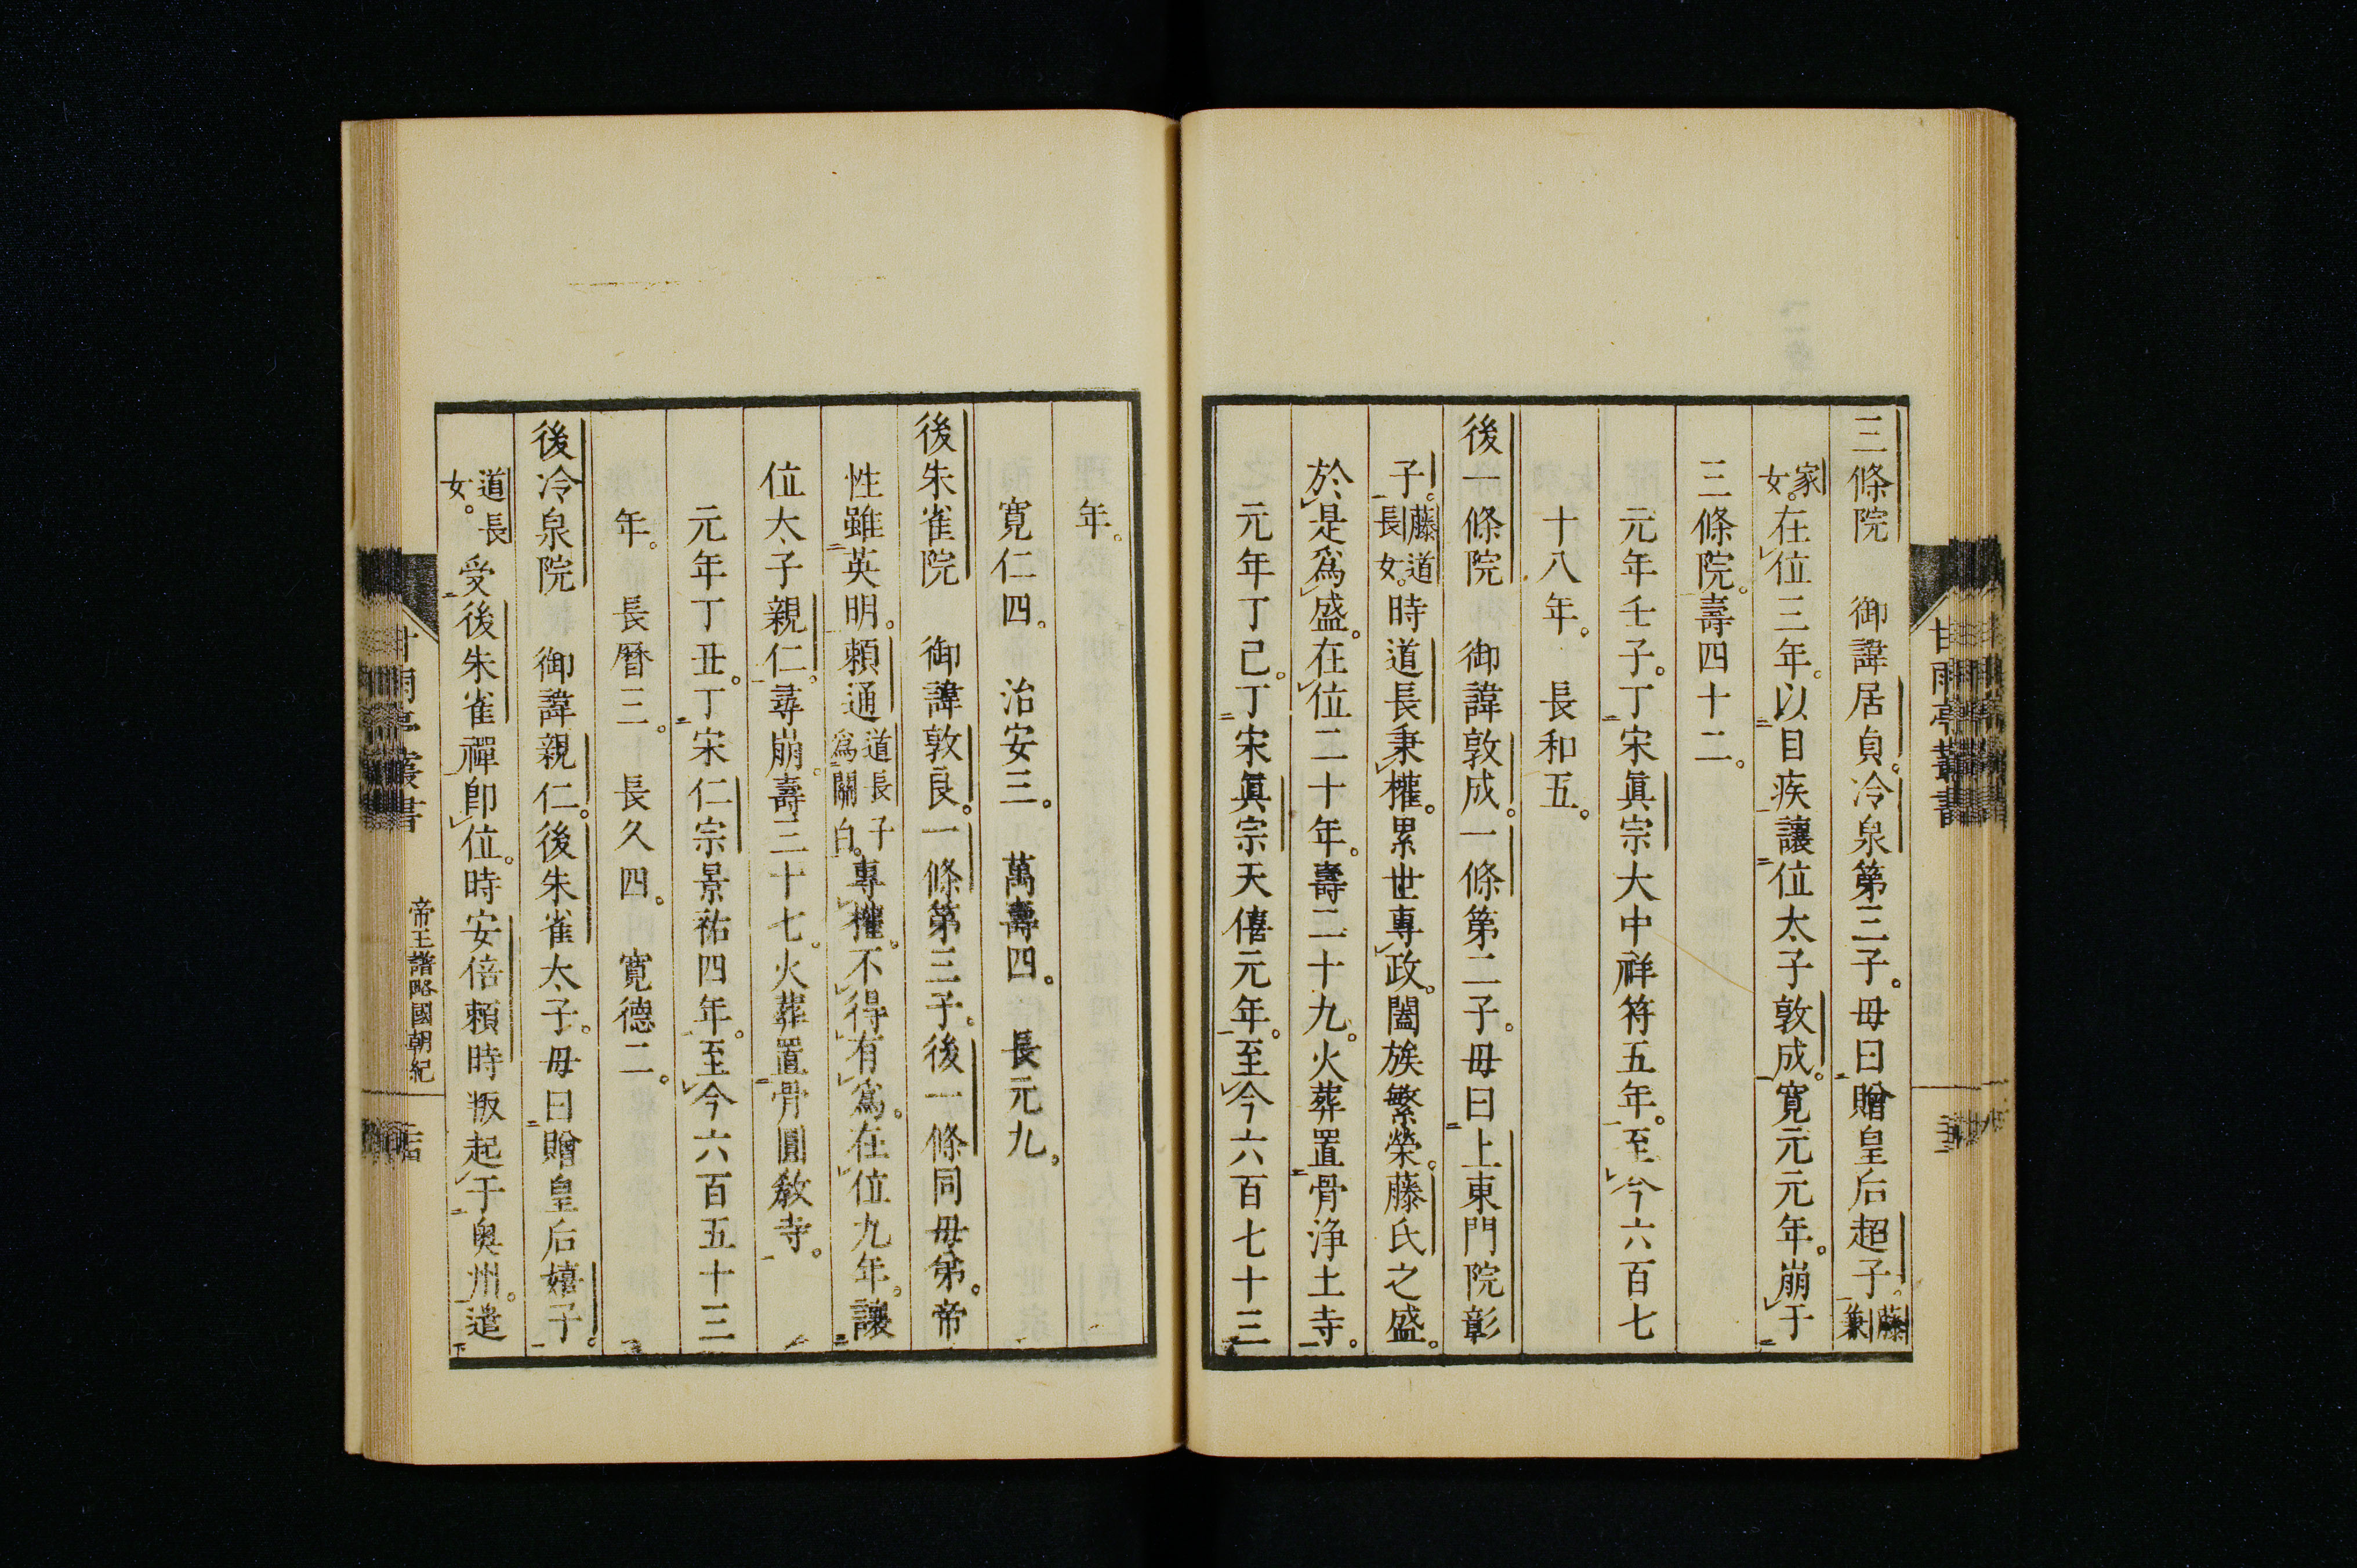 三條院　御諱居貞。冷泉第三子。母曰贈皇后超子。藤兼
家女。在位三年。以目疾讓位太子敦成。寛元元年。崩于
三條院。壽四十二。
元年壬子。丁宋眞宗大中祥符五年。至今六百七
十八年。　長和五。
後一條院　御諱敦成。一條第二子。母曰上東門院彰
子。藤道長女。時道長秉權。累世專政。闔族繁榮。藤氏之盛。
於是爲盛。在位二十年。壽二十九。火葬置骨浄土寺。
元年丁己。丁宋眞宗天僖元年。至今六百七十三
年。
寛仁四。　治安三。　萬壽四。　長元九。
後朱雀院　御諱敦良。一條第三子。後一條同母弟。帝
性雖英明。頼通道長子爲關白。專權。不得有爲。在位九年。讓
位太子親仁。尋崩。壽三十七。火葬置骨圓敎寺。
元年丁丑。丁宋仁宗景祐四年。至今六百五十三
年。　長曆三。　長久四。　寛德二。
後冷泉院　御諱親仁。後朱雀太子。母曰贈皇后嬉子。
道長女。受後朱雀禪卽位。時安倍頼時叛起于奥州。遣
甘雨亭叢書
帝王譜略國朝紀
甘雨亭叢書